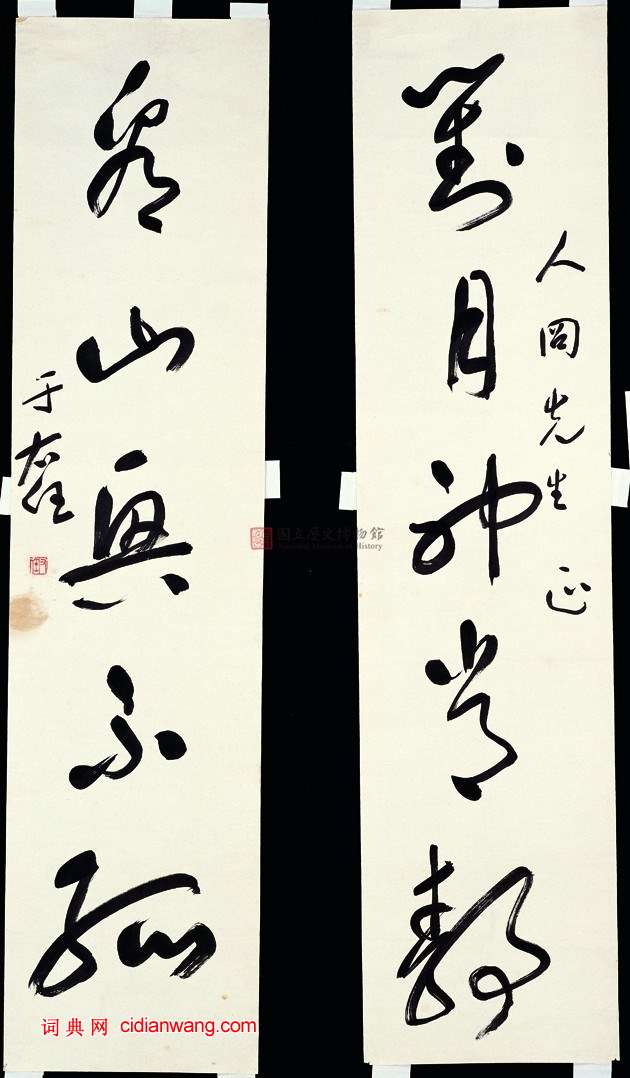 對月神常靜
人岡先生 正
看山興不孤
于右任
國立歷史博物館
National Museum of History
词典网 cidianwang.com